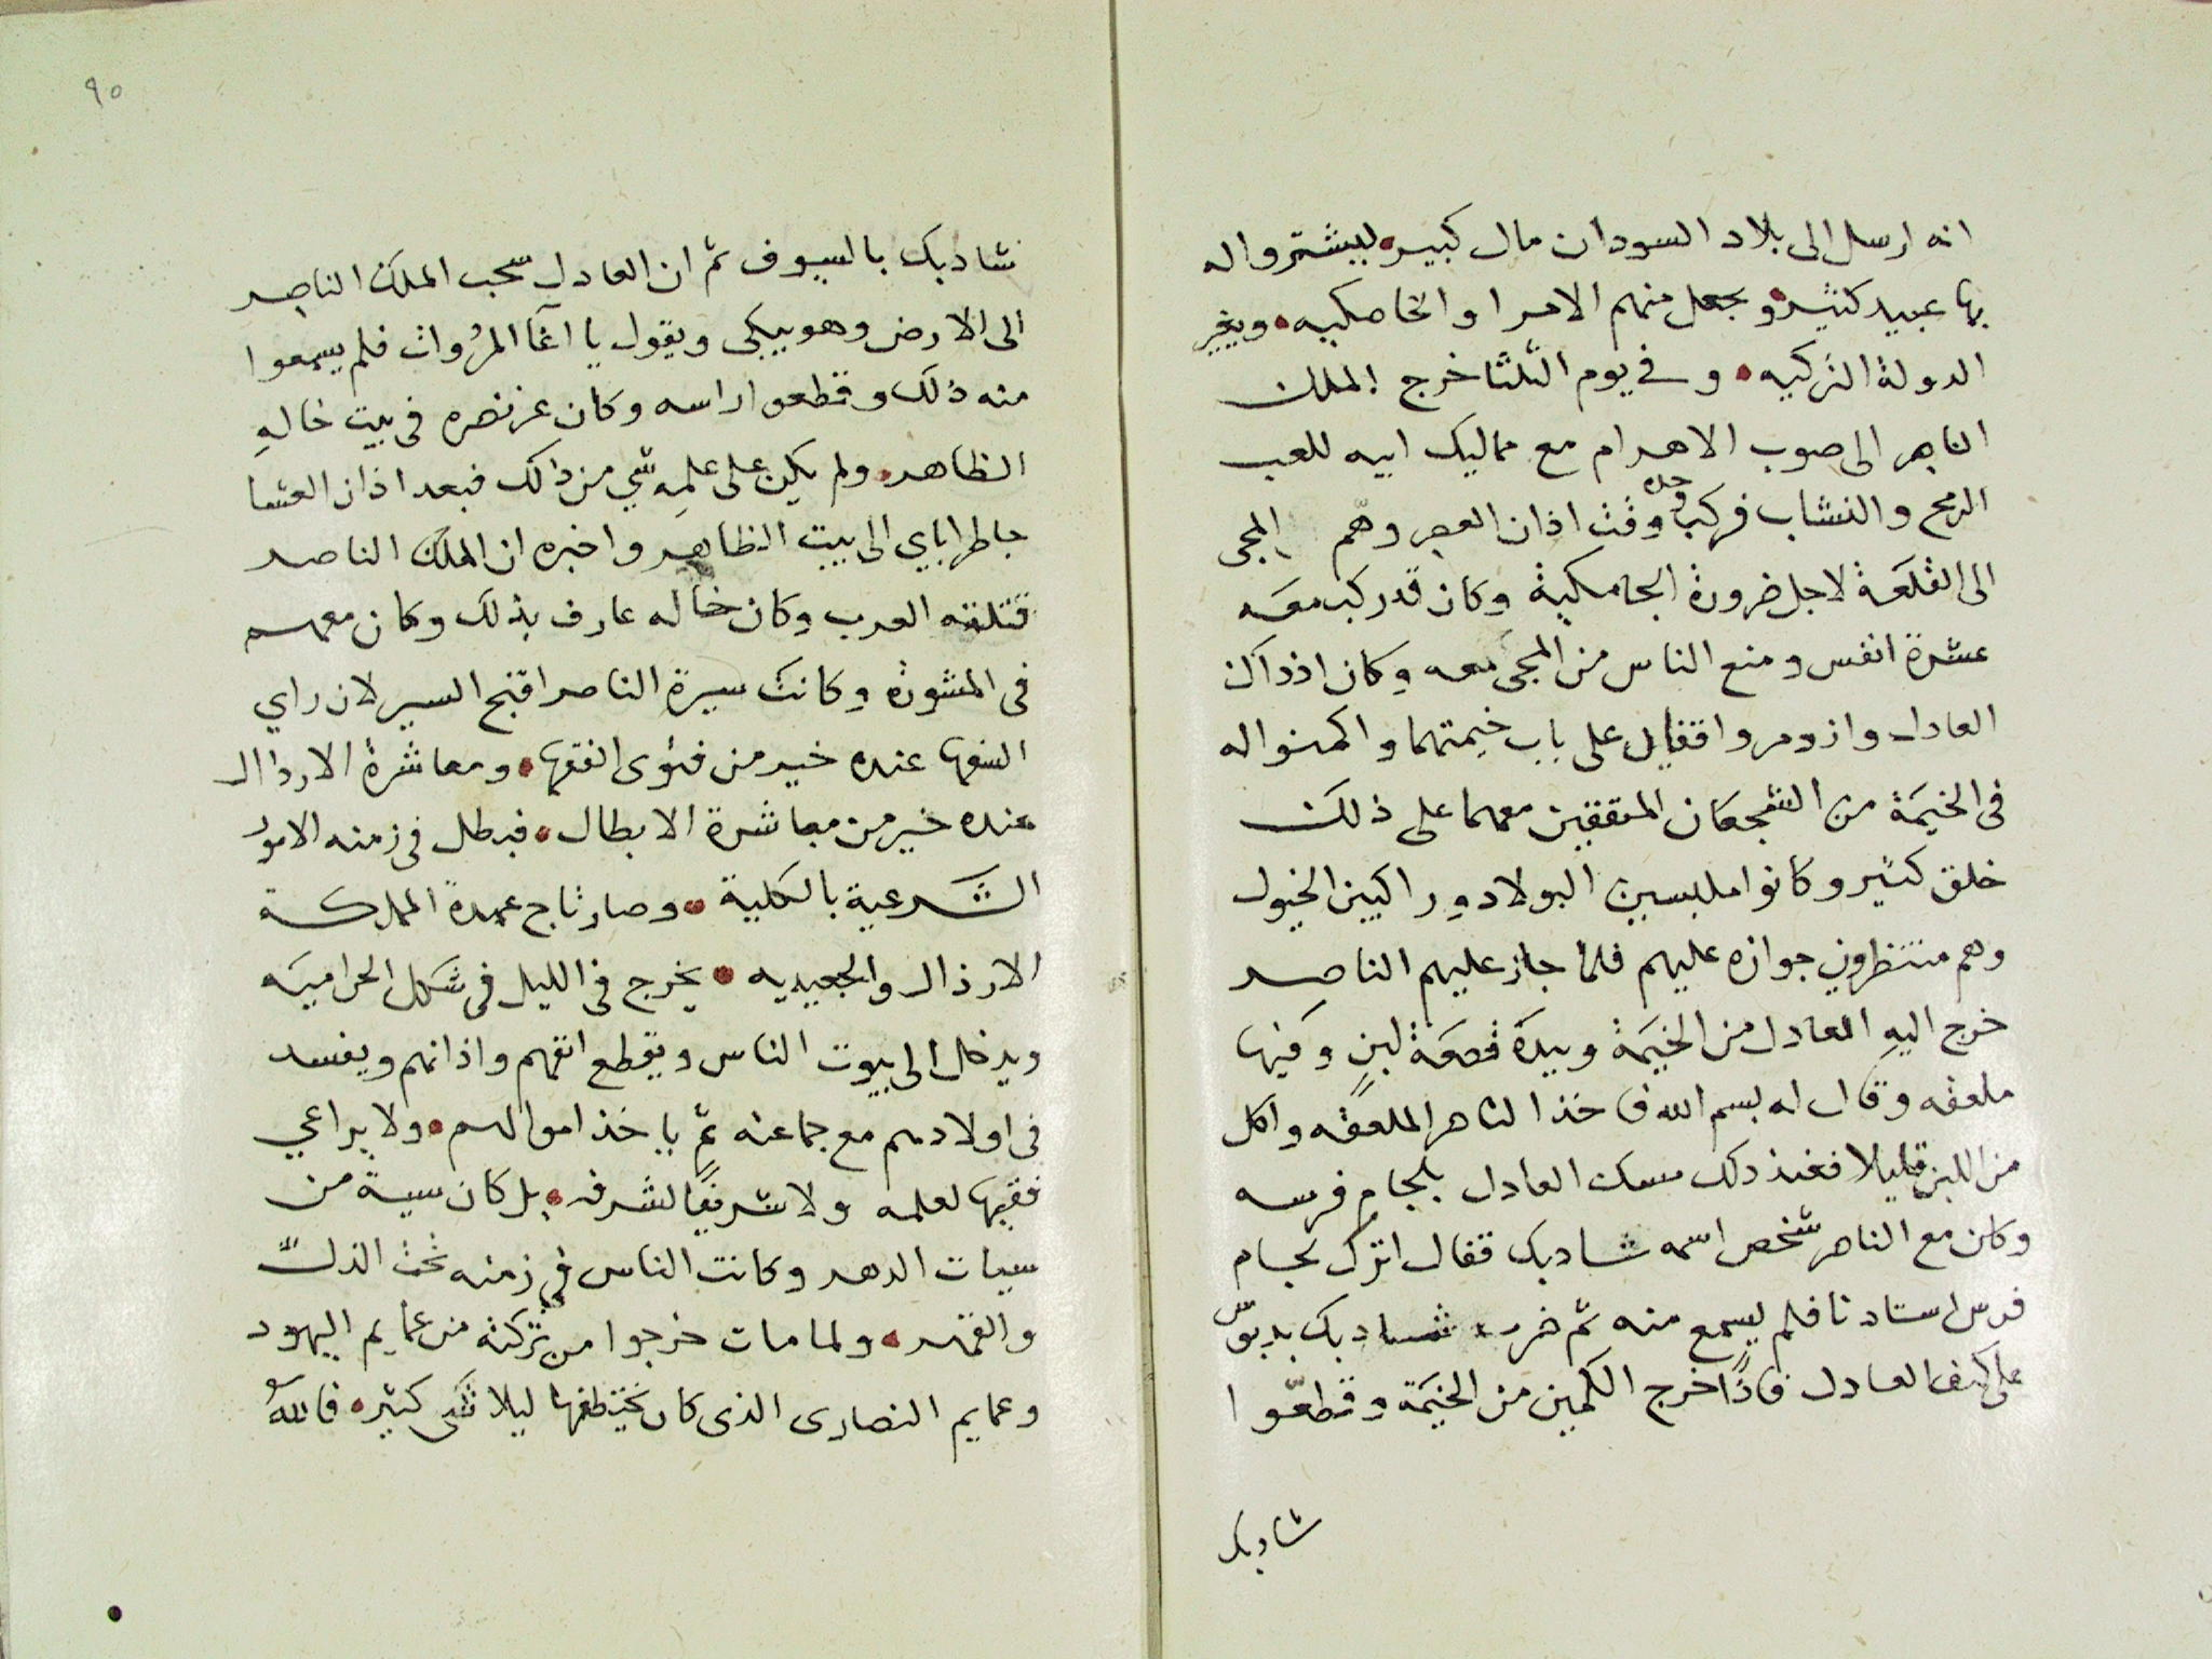 انه ارسل الى بلاد السودان مال كبير ليشتروا له
بها عبيد كثيره ويجعل منهم الامرا والخاصكيه ويغير
الدولة التركيه وفي يوم الثلثا خرج الملك
الناصر الى صوب الاهرام مع مماليك ابيه للعب
الرمح والنشاب فركب وحده وقت اذان العصر وهم المجى
الى القلعة لاجل ضرورة الجامكية وكان قد ركب معه
عشرة انفس ومنع الناس من المجى معه وكان اذ ذاك
العادل وازدمر واقفين على باب خيمتهما واكمنوا له
فى الخيمة من الشجعان المتفقين معهما على ذلك
خلق كثير وكانوا ملبسين البولاد وراكبين الخيول
وهم منتظرون جوازه عليهم فلما جاز عليهم الناصر
خرج اليه العادل من الخيمة وبيده قصعة لبن وفيها
ملعقه وقال له بسم الله فاخذ الناصر الملعقه واكل
من اللبن قليلا فعند ذلك مسك العادل بلجام فرسه
وكان مع الناصر شخص اسمه شادبك فقال اترك لجام
فرس استادنا فلم يسمع منه ثم ضرب شادبك بدبوس
على كتف العادل فاذا خرج الكمين من الخيمة وقطعوا
شادبك
٩٠
شادبك بالسيوف ثم ان العادل سحب الملك الناصر
الى الارض وهو يبكى ويقول يا اغا المروات فلم يسمعوا
منه ذلك وقطعوا راسه وكان عز نصره فى بيت خاله
الظاهر ولم يكن على علمه شي من ذلك فبعد اذان العشا
جا طراباي الى بيت الظاهر واخبره ان الملك الناصر
قتلته العرب وكان خاله عارف بذلك وكان معهم
فى المشورة وكانت سيرة الناصر اقبح السير لان راي
السفها عنده خير من فتوى الفقها ومعاشرة الاردال
عنده خير من معاشرة الابطال فبطل فى زمنه الامور
الشرعية بالكلية وصار تاج عمدة المملكة
الارذال والجعيديه يخرج فى الليل فى شكل الحراميه
ويدخل الى بيوت الناس ويقطع انفهم واذانهم ويفسد
فى اولادهم مع جماعته ثم ياخذ اموالهم ولا يراعي
فقيها لعلمه ولا شريفا لشرفه بل كان سية من
سيات الدهر وكانت الناس في زمنه تحت الذل
والقهر ولما مات خرجوا من تركته من عمايم اليهود
وعمايم النصارى الذى كان يختطفها ليلا شى كثير فالله